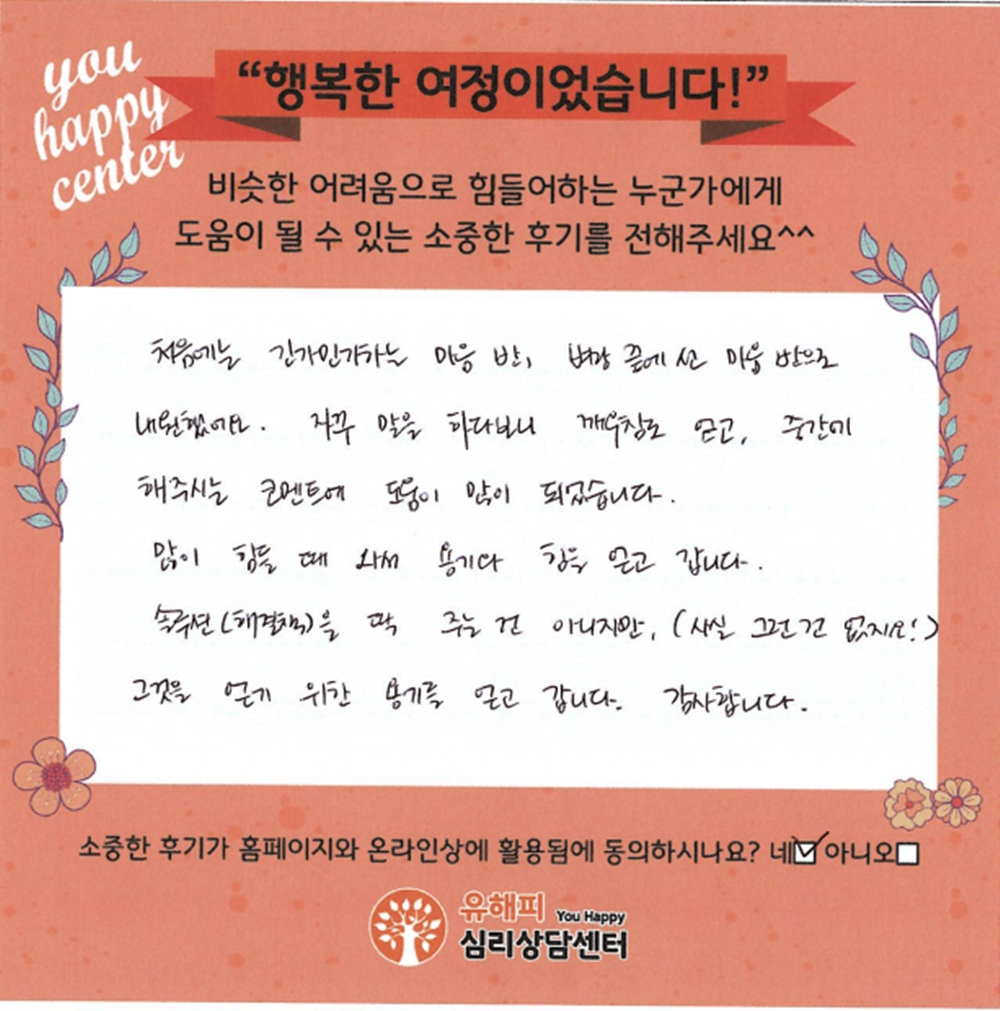 you
happy
center
“행복한 여정이었습니다!”
비슷한 어려움으로 힘들어하는 누군가에게
도움이 될 수 있는 소중한 후기를 전해주세요^^
처음에는 긴가민가하는 마음 반, 벼랑 끝에 선 마음 반으로
내원했어요. 자꾸 말을 하다보니 깨우침도 얻고, 중간에
해주시는 코멘트에 도움이 많이 되었습니다.
많이 힘들 때 와서 용기와 힘을 얻고 갑니다.
솔루션(해결책)을 딱 주는 건 아니지만, (사실 그런 건 없지요!)
그것을 얻기 위한 용기를 얻고 갑니다. 감사합니다.
소중한 후기가 홈페이지와 온라인상에 활용됨에 동의하시나요? 네☑ 아니오☐
유해피 You Happy
심리상담센터